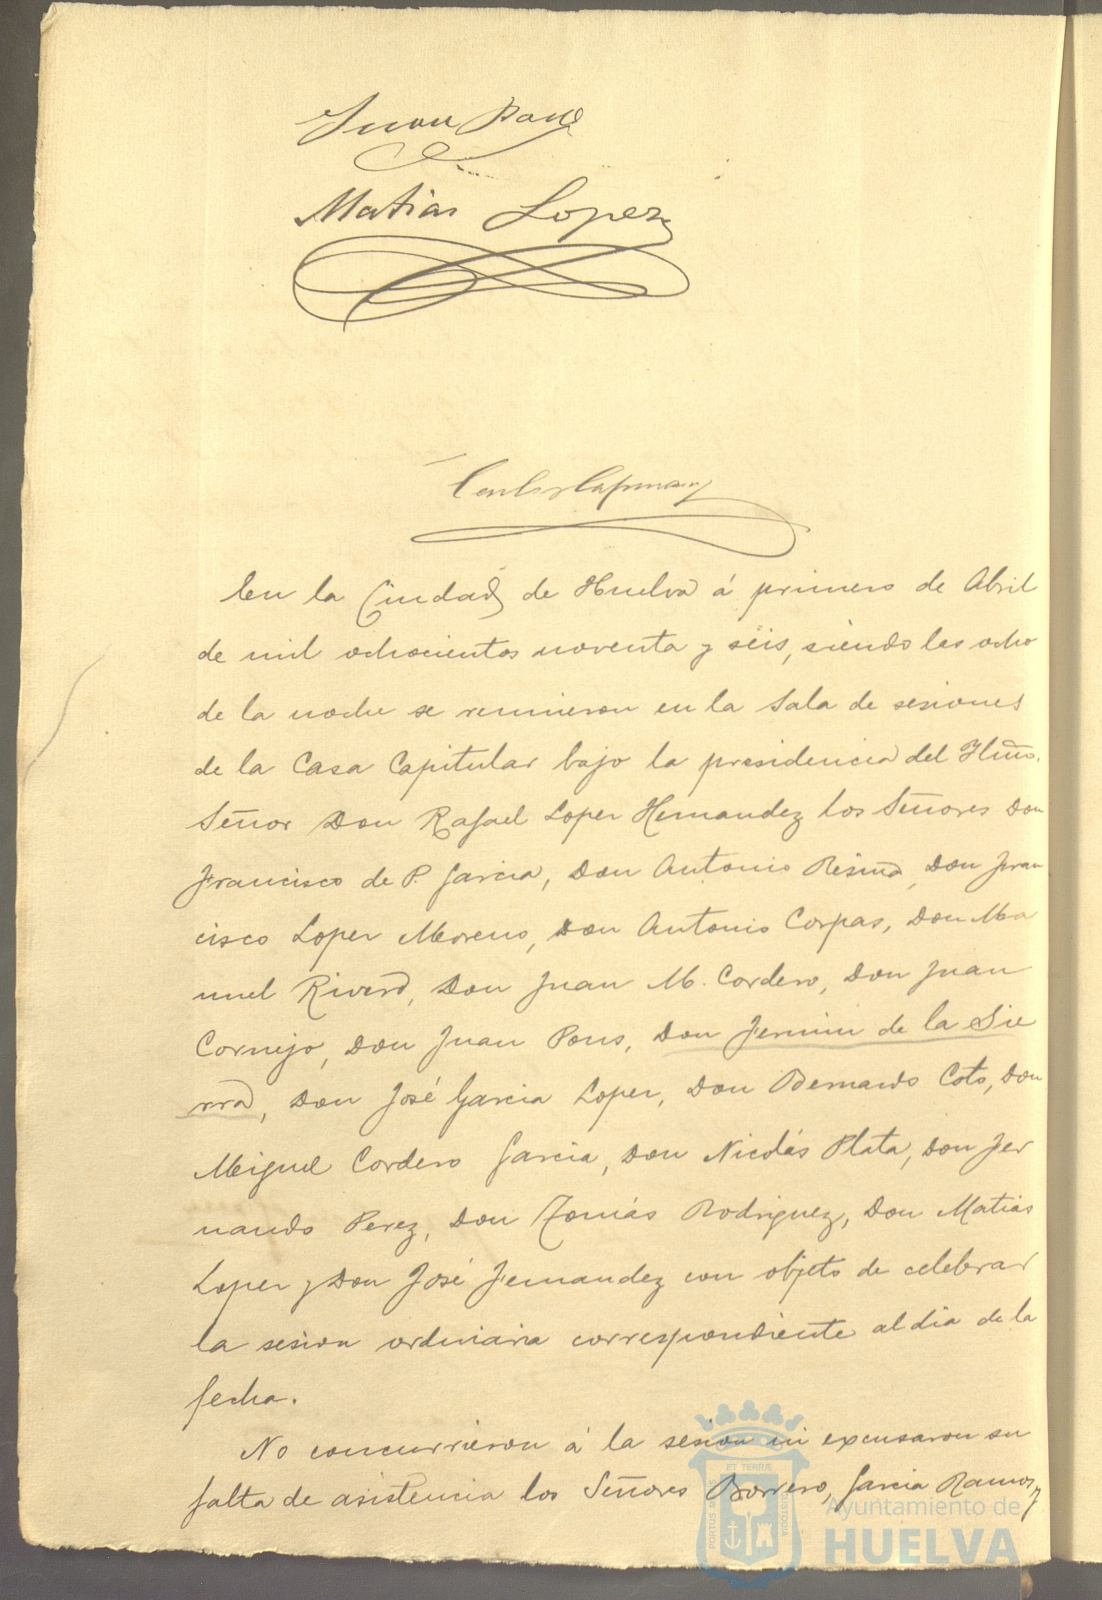 Juan Pons
Matias Lopez
En la Ciudad de Huelva á primero de Abril
de mil ochocientos noventa y seis, siendo las ocho
de la noche se reunieron en la Sala de sesiones
de la Casa Capitular bajo la presidencia del Iltmo.
Señor Don Rafael Lopez Hernandez los Señores Don
Francisco de P. Garcia, Don Antonio Resina, Don Fran
cisco Lopez Moreno, Don Antonio Corpas, Don Ma
nuel Rivero, Don Juan M. Cordero, Don Juan
Cornejo, Don Juan Pons, Don Fermin de la Sie
rra, Don José Garcia Lopez, Don Bernardo Coto, Don
Miguel Cordero Garcia, Don Nicolás Plata, Don Fer
nando Perez, Don Tomás Rodriguez, Don Matias
Lopez y Don José Fernandez con objeto de celebrar
la sesion ordinaria correspondiente al dia de la
fecha.
No concurrieron á la sesion ni excusaron su
falta de asistencia los Señores Borrero, Garcia Ramos y
Ayuntamiento de
HUELVA